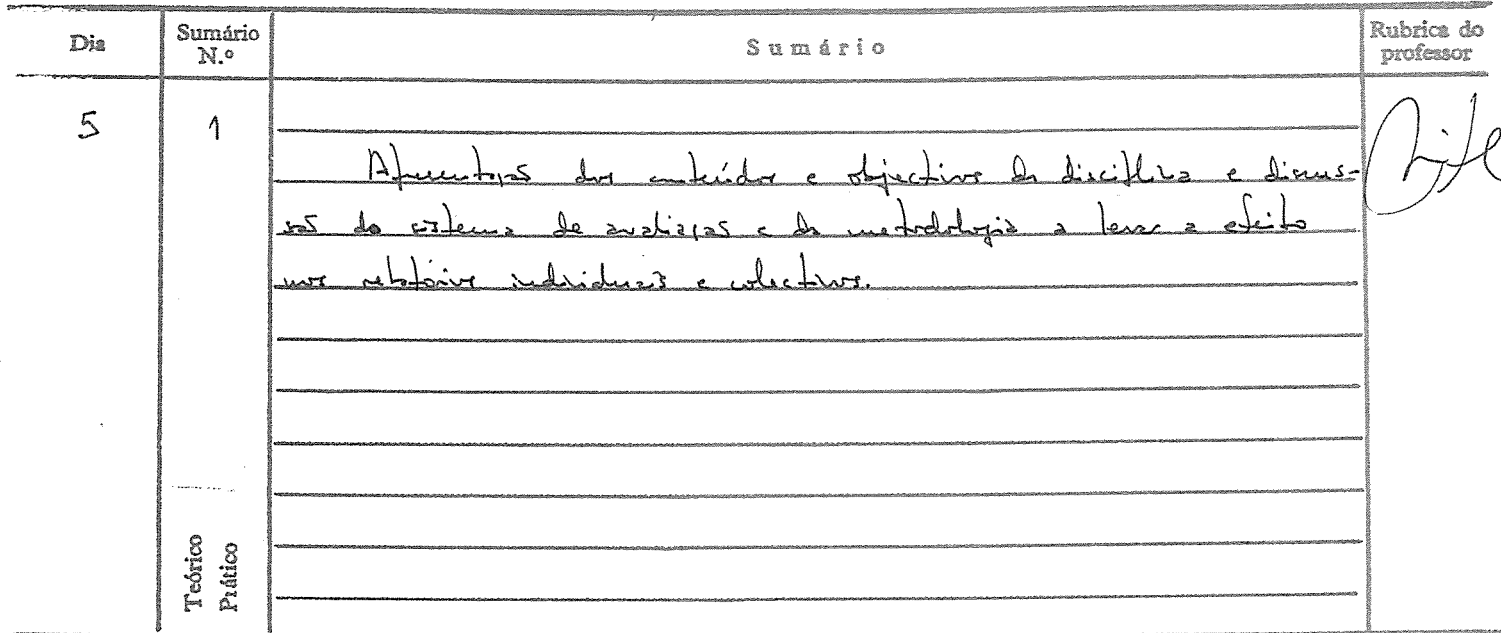 Dia
Sumário N.º
Sumário
Rubrica do professor
5
1
Apresentação dos conteúdos e objectivos da disciplina e discus-
são do sistema de avaliação e da metodologia a levar a efeito
nos relatórios individuais e colectivos.
Teórico
Prático